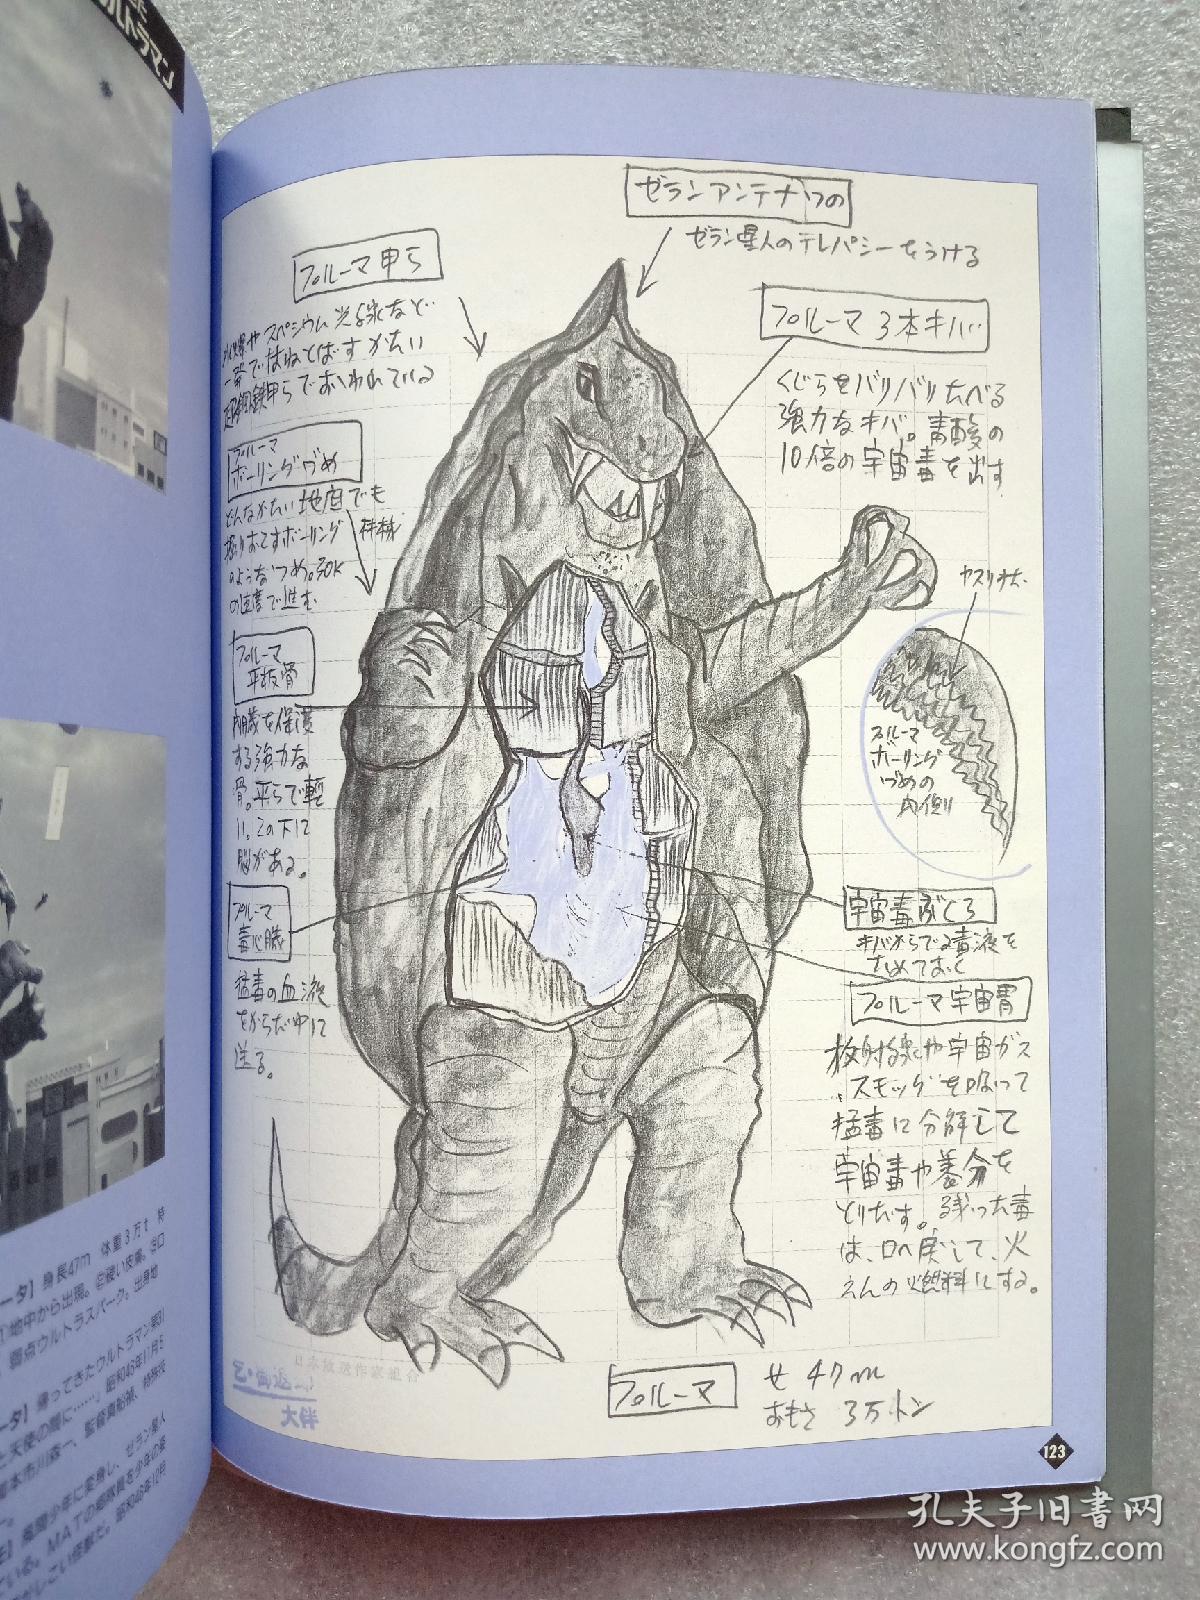 ルトラマン
ゼランアンテナつの
ゼラン星人のテレパシーをうける
プルーマ甲ら
スペシウム光線など
一発ではねとばすかたい
超鋼鉄甲らでおおわれている
プルーマ3本キバ
くじらをバリバリたべる
強力なキバ。青酸の
10倍の宇宙毒を出す
プルーマ
ボーリングづめ
どんなかたい地面でも
掘りおこすボーリング
のようなつめ。30K
の速度で進む
プルーマ
平板骨
内臓を保護
する強力な
骨。平らで
い。この下に
脳がある。
プルーマ
毒心臓
猛毒の血液
をからだ中に
送る。
ヤスリみたい
プルーマ
ボーリング
づめの
内側
宇宙毒ぶくろ
キバからでる毒液を
ためておく
プルーマ宇宙胃
放射線や宇宙ガス
、スモッグを吸って
猛毒に分解して
宇宙毒や養分を
とりだす。残った毒
は、口へ戻して、火
えんの燃料にする。
日本放送作家組合
大伴
プルーマ
せ 47m
おもさ 3万トン
123
ータ】身長47m 体重3万t 特
地中から出現。
弱点ウルトラスパーク。出身地
ータ】帰ってきたウルトラマン第31
と天使の間に……」昭和46年11月5
脚本市川森一、監督真船禎、特殊技
少年に変身し、ゼラン星人
いる。MATの郷隊員を少年の姿
孔夫子旧书网
www.kongfz.com